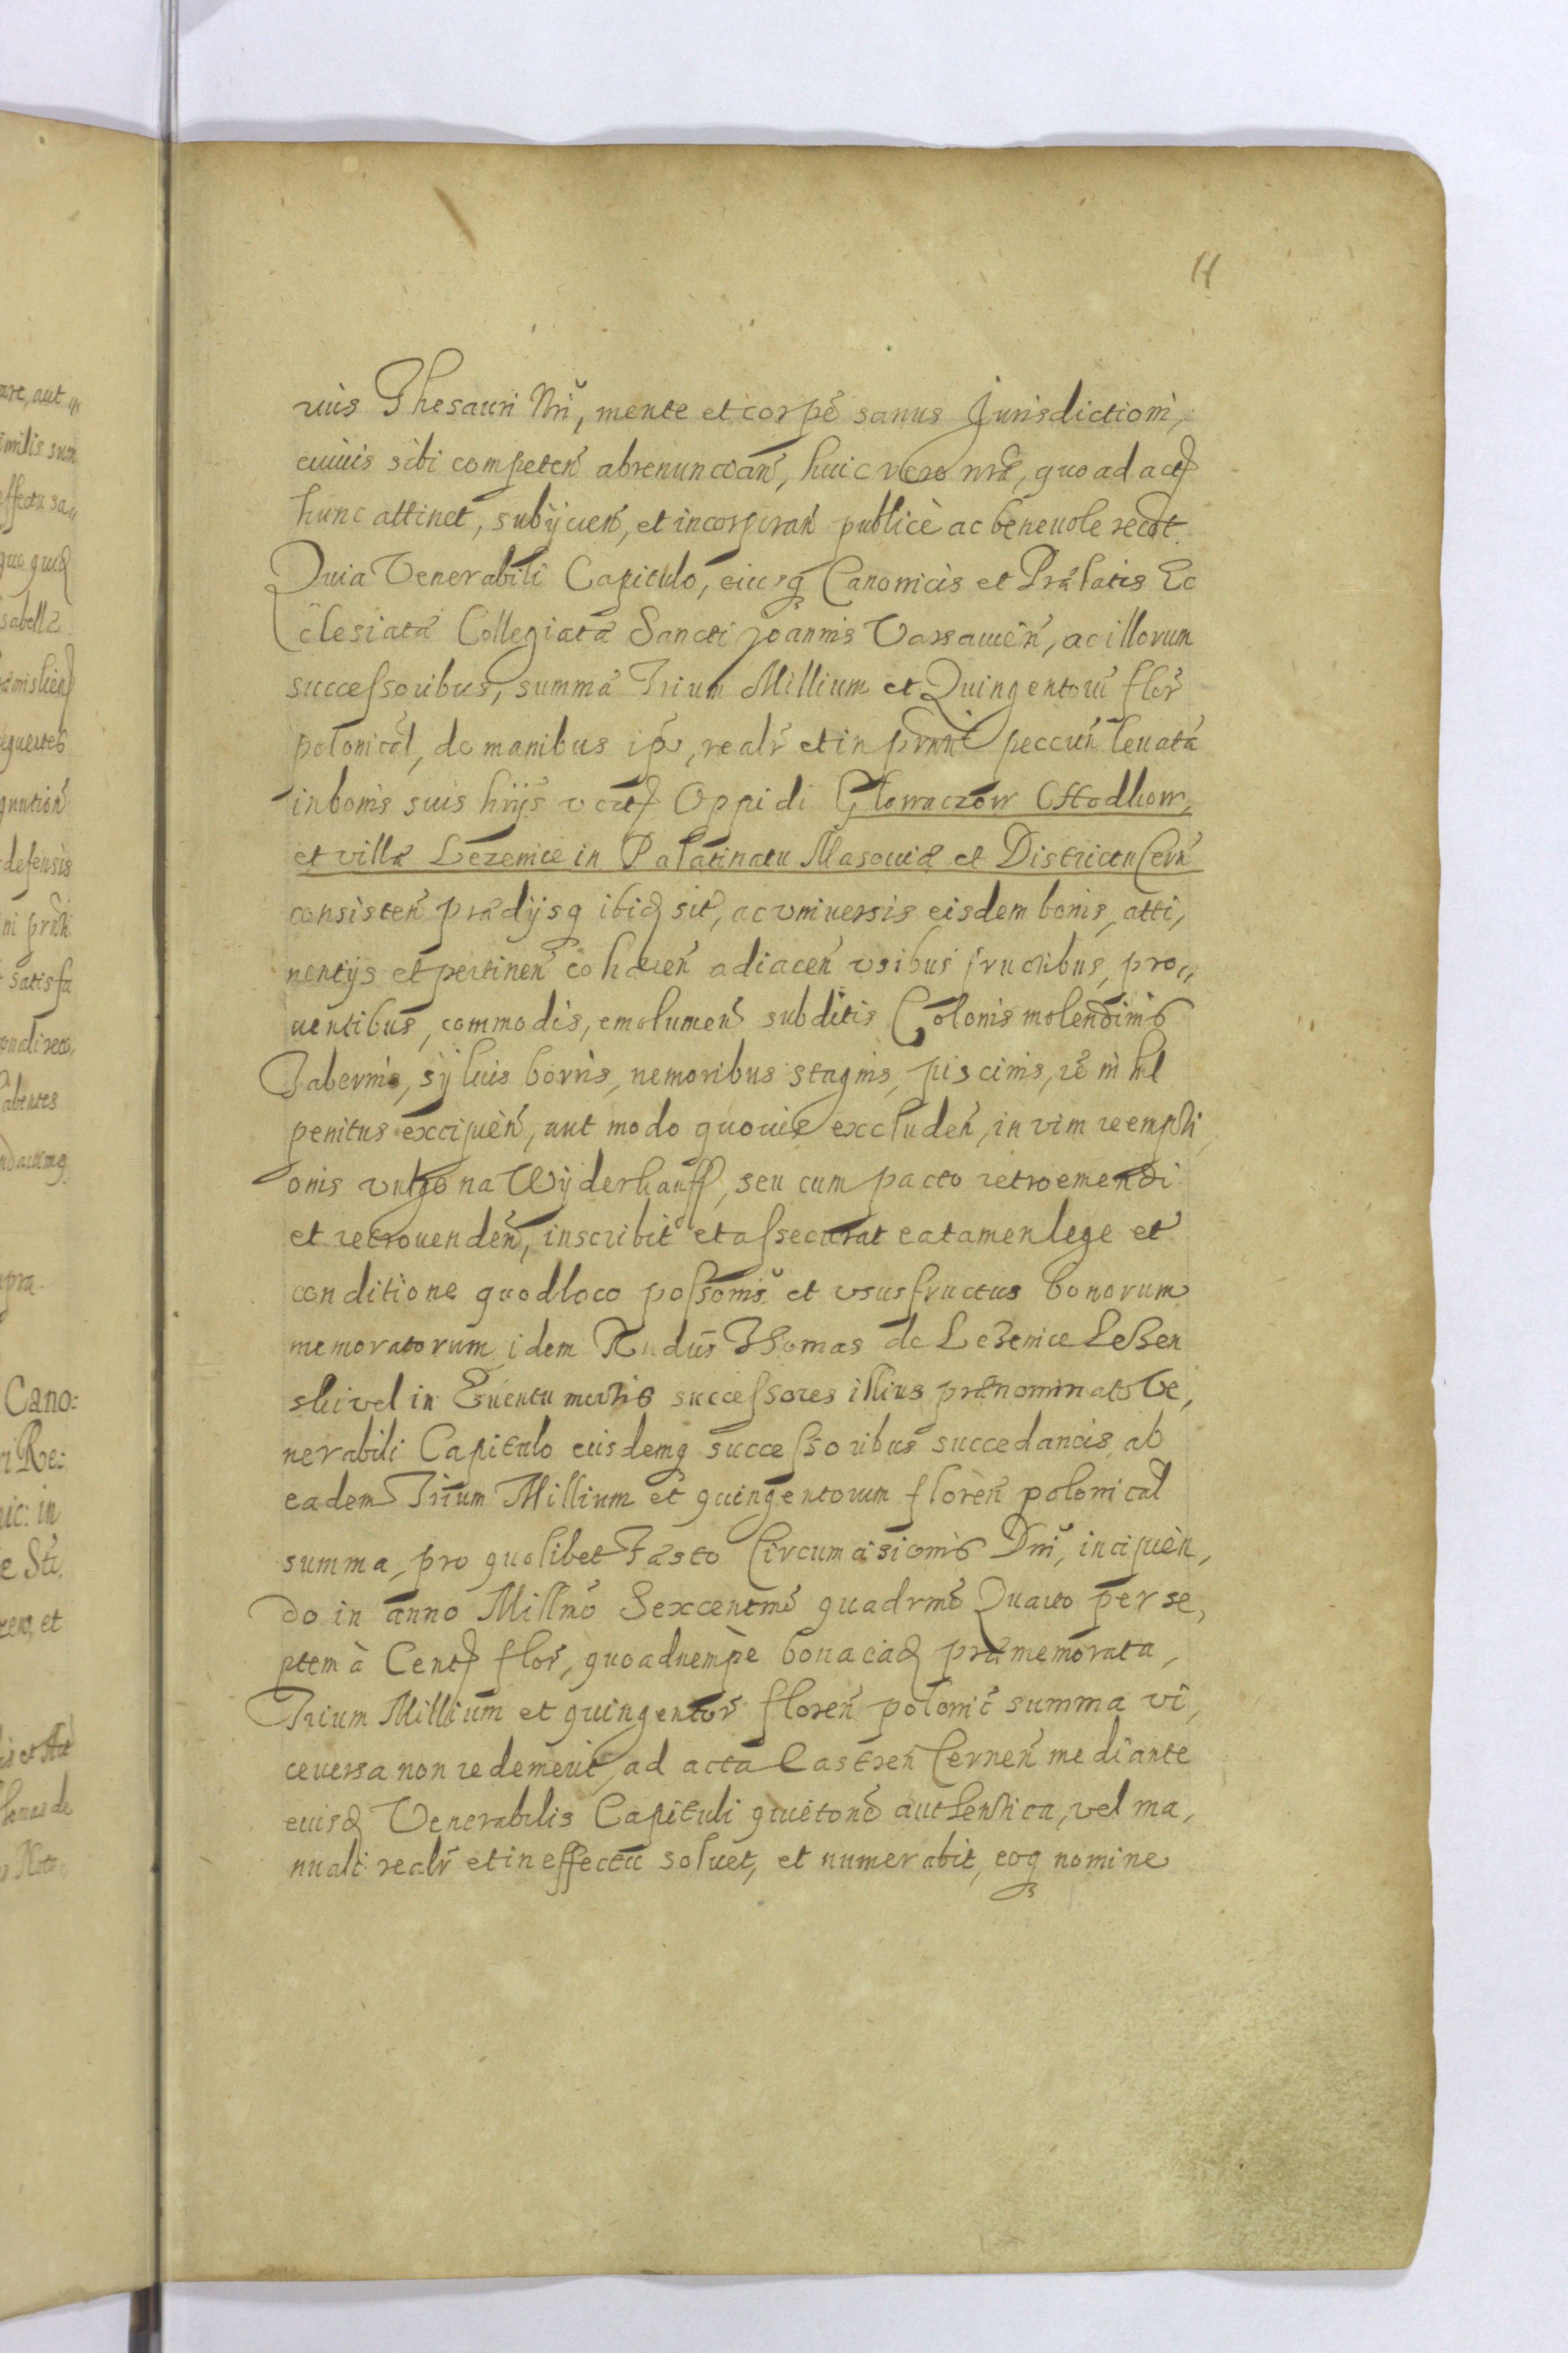 11
rius Thesauri Nrĩ, mente et corpẽ sanus Jurisdictioni,
cuiuis sibi competeñ abrenunciañ, huic vero nrã, quo ad actũ
hunc attinet, subÿcieñ, et incorporañ publicè ac beneuole recõt.
Quia Venerabili Capitulo, eiusq Canonicis et Prælatis Ec
clesiatæ Collegiatæ Sancti Joannis Varsauieñ, ac illorum
successoribus, summã Trium Millium et Quingentorũ flor̃
polonical, de manibus ip̃o, realr̃ et in prnti peccuñ leuatã
in bonis suis hrijs utputa Oppidi Glowaczow
et villæ Lezenice in Palatinatu Masouiæ et Districtu Cerñ
consisteñ prædijsq ibid sit̃, ac vniuersis eisdem bonis, atti,
nentijs et pertineñ cohæreñ adiaceñ vsibus fructibus, pro„
uentibus, commodis, emolumeñ subditis Colonis molendinis
Tabernis, syluis borris, nemoribus stagnis, piscinis, ve nihil
penitus excipieñ, aut modo quouis excludeñ, in vim reempti,
onis vulgo na Wÿderkauff, seu cum pacto retroemendi
et retrouendeñ, inscribit et assecurat ea tamen lege et
conditione quod loco possonis et vsusfructus bonorum
memoratorum idem Thomas de Lezenice Lezen
ski vel in Euentu mortis successores illius prænominato Ve,
nerabili Capitulo eiusdemq successoribus succedaneis ab
eadem Trium Millium et quingentorum floreñ polonical
summa, pro quolibet Fasto Circumcisionis Dnĩ, incipièn,
do in anno Millmo Sexcentmo quadrmo Quarto per se,
ptem à Cent flor̃, quoad nempè bona ead præmemorata,
Trium Millium et quingentor̃ floreñ polonic̃ summa vi,
ceuersa non redemerit, ad acta Castreñ Cerneñ mediante
eiusd Venerabilis Capituli quietone authentica, vel ma,
nuali realr̃ et in effectu soluet, et numerabit, eoq nomine